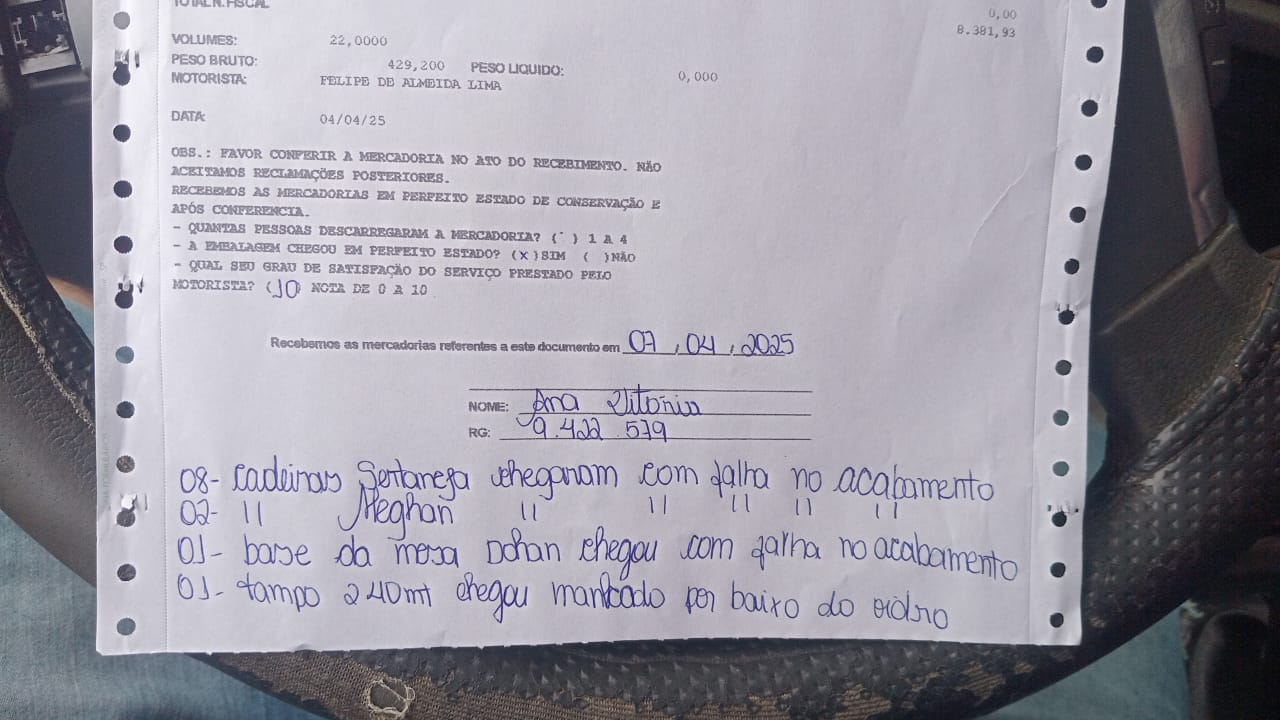 TOTAL N. FISCAL
0,00
8.381,93
VOLUMES: 22,0000
PESO BRUTO: 429,200 PESO LIQUIDO: 0,000
MOTORISTA: FELIPE DE ALMEIDA LIMA
DATA: 04/04/25
OBS.: FAVOR CONFERIR A MERCADORIA NO ATO DO RECEBIMENTO. NÃO
ACEITAMOS RECLAMAÇÕES POSTERIORES.
RECEBEMOS AS MERCADORIAS EM PERFEITO ESTADO DE CONSERVAÇÃO E
APÓS CONFERENCIA.
- QUANTAS PESSOAS DESCARREGARAM A MERCADORIA? ( ) 1 A 4
- A EMBALAGEM CHEGOU EM PERFEITO ESTADO? (X)SIM ( )NÃO
- QUAL SEU GRAU DE SATISFAÇÃO DO SERVIÇO PRESTADO PELO
MOTORISTA? (10) NOTA DE 0 A 10
Recebemos as mercadorias referentes a este documento em 07, 04, 2025
NOME: Ana Vitoria
RG: 9.422.579
08- cadeiras Sertaneja chegaram com falha no acabamento
02- 11 Meghan 11 11 11 11 11
01- base da mesa Dohan chegou com falha no acabamento
01- tampo 240mt chegou manchado por baixo do vidro